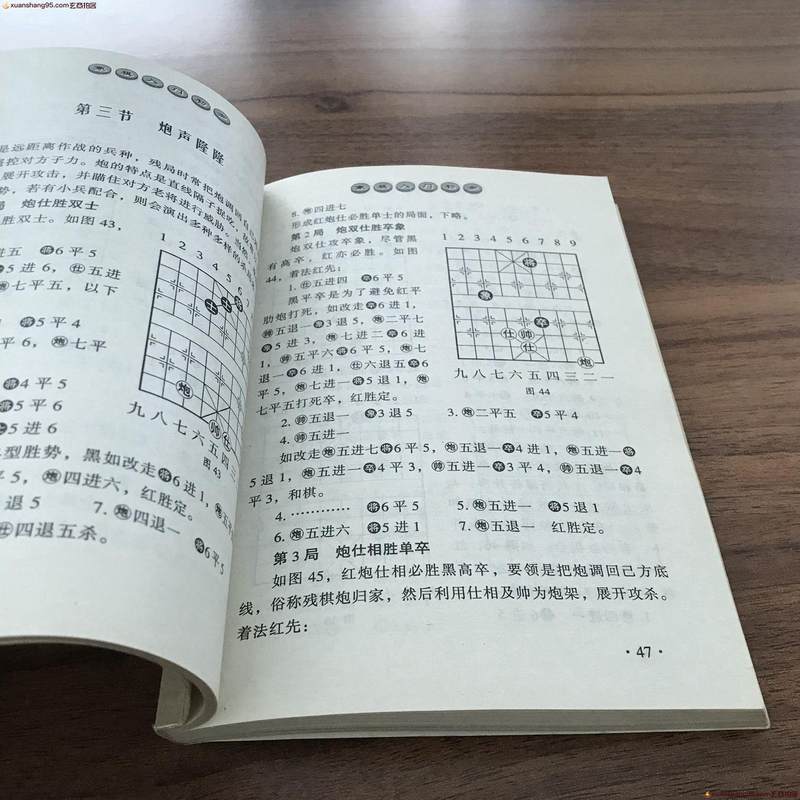 xuanshang95.com玄商拍图
第三节 炮声隆隆
是远距离作战的兵种，残局时常把炮调回
控对方子力。炮的特点是直线隔子捉吃，故
展开攻击，并瞄住对方老将进行威胁。
势，若有小兵配合，则会演出多种多样的
局 炮仕胜双士
胜双士。如图43，
1 2 3 4 5 6
五进五 将6平5
5进6，仕五进
炮七平五，以下
将5平4
6，炮七平
将4平5
将5平6
5进6
型胜势，黑如改走将6进1，
5，炮四进六，红胜定。
退5 7.炮四退一 将6平5
仕四退五杀。
士
将
炮
帅
仕
九八七六五四三
图43
8.炮四进七
形成红炮仕必胜单士的局面，下略。
第2局 炮双仕胜卒象
炮双仕攻卒象，尽管黑
有高卒，红亦必胜。如图
44，着法红先：
1.仕五进四 卒6平5
黑平卒是为了避免红平
肋炮打死，如改走卒6进1，
帅五退一象3退5，炮二平七
象5进3，炮七进二卒6进
1，帅五平六将6平5，炮七
退一卒6进1，仕六退五卒6
平5，炮七进一将5退1，炮
七平五打死卒，红胜定。
2.帅五退一 象3退5 3.炮二平五 卒5平4
4.帅五进一
如改走炮五进七将6平5，炮五退一卒4进1，炮五进一将
5退1，炮五进一卒4平3，帅五进一卒3平4，帅五退一卒4
平3，和棋。
4.………… 将6平5 5.炮五进一 将5退1
6.炮五进六 将5进1 7.炮五退一 红胜定。
第3局 炮仕相胜单卒
如图45，红炮仕相必胜黑高卒，要领是把炮调回己方底
线，俗称残棋炮归家，然后利用仕相及帅为炮架，展开攻杀。
着法红先：
1 2 3 4 5 6 7 8 9
将
象
卒
仕 帅
仕
炮
九八七六五四三二一
图44
·47·
xuanshang95.com玄商拍图